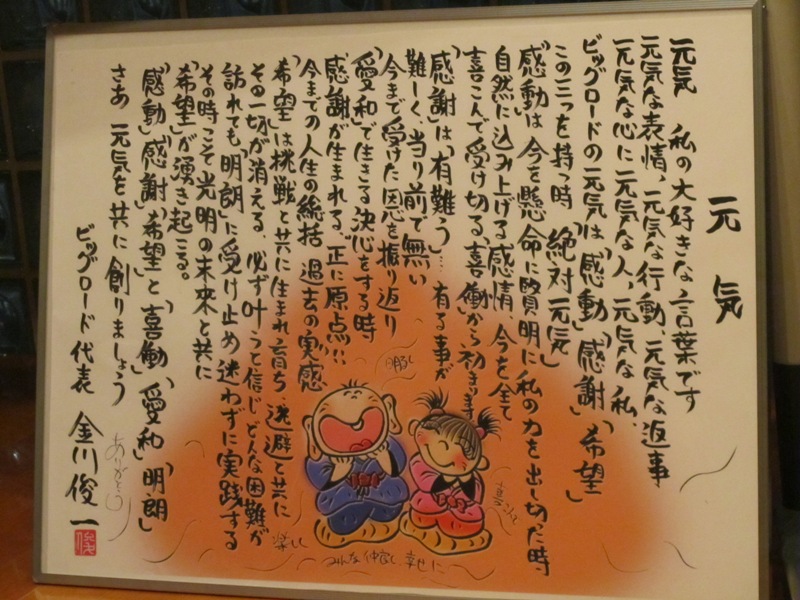 元気
元気 私の大好きな言葉です
元気な表情、元気な行動、元気な返事
元気な心に元気な人、元気な私、
ビッグロードの元気は「感動」「感謝」「希望」
この三つを持つ時「絶対元気」
「感動」は今を懸命に賢明に私の力を出し切った時
自然に込み上げる感情、今を全て
喜こんで受け切る「喜働」から初まります
「感謝」は「有難う」… 有る事が
難しく、当り前で無い
今まで受けた恩を振り返り
「愛和」で生きる決心をする時
感謝が生まれる、正に原点!!
今までの人生の総括 過去の実感
「希望」は挑戦と共に生まれ育ち、逃避と共に
その一切が消える、必ず叶うと信じどんな困難が
訪れても「明朗」に受け止め迷わずに実践する
その時こそ光明の未来と共に
「希望」が湧き起こる。
「感動」「感謝」「希望」と「喜働」「愛和」「明朗」
さあ 元気を共に創りましょう
ビッグロード代表 金川俊一
ありがとう
明るく
楽しく
みんな仲良し 幸せに